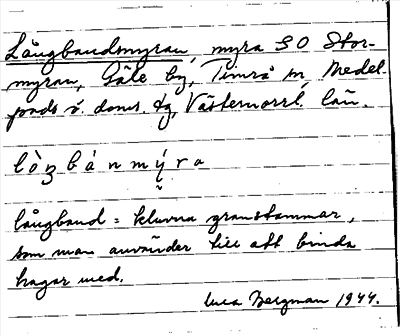 Långbandsmyran, myra SO Stor-
myran, Gåle by, Timrå sn, Medel-
pads ö. doms. tg, Västernorrl. län.
lò̀ŋbánmýra
långband = kluvna granstammar,
som man använder till att binda
hagar med.
Bergman 1944.